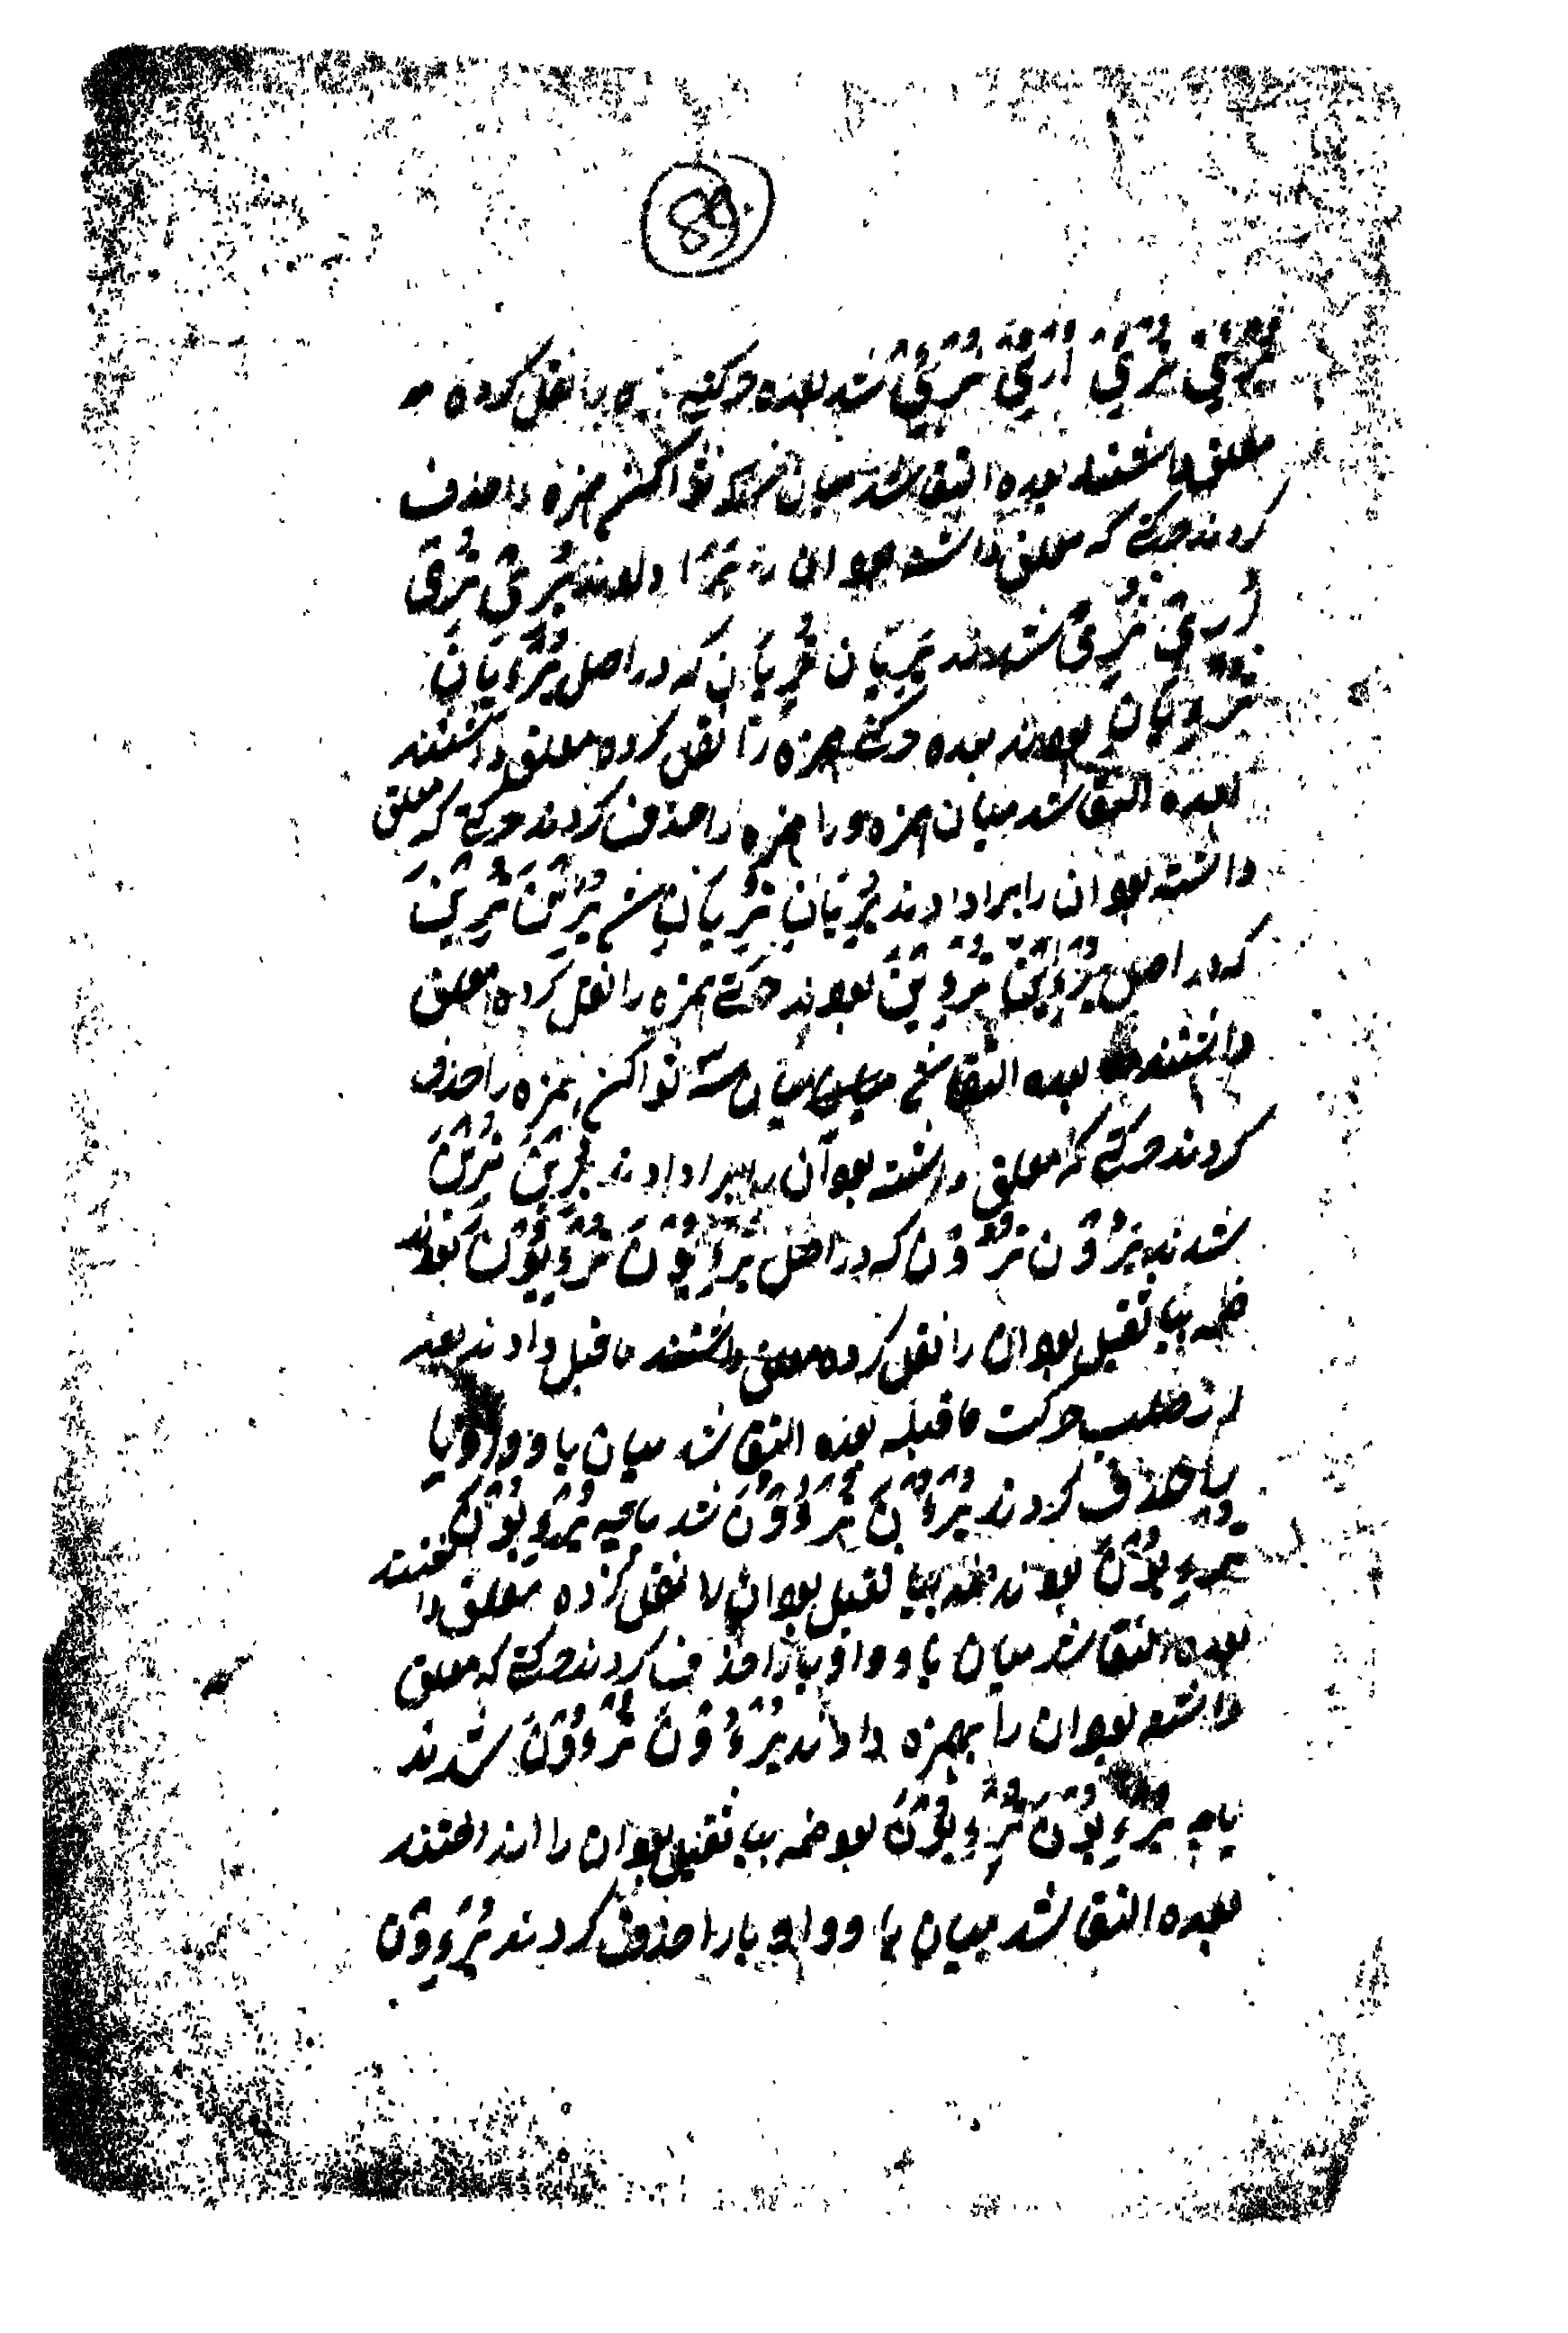 89
یُرْئِیُ تُرْئِیُ اُرْئِیُ نُرْئِیُ شد بعده حرکتے را نقل کرده
معلق داشتند بعده التقا شد میان همزه را حذف
کردند حرکتے که معلق داشته بود آن را برا دادند یُرِیْ تُرِیْ
اُرِیْ نُرِیْ شدند یُرِیَانِ تُرِیَانِ که در اصل یُرْءِیَانِ
تُرْءِیَانِ بودند بعده حرکتے همزه را نقل کرده معلق داشتند
بعده التقا شد میان همزه و را همزه را حذف کردند حرکتے که معلق
داشته بود آن را برا دادند یُرِیَانِ تُرِیَانِ شد یُرِیْنَ تُرِیْنَ
که در اصل یُرْءِیْنَ تُرْءِیْنَ بودند حرکتے همزه را نقل کرده معلق
داشتند بعده التقا شد میان سه سواکن همزه را حذف
کردند حرکتے که معلق داشته بود آن را برا دادند یُرِیْنَ تُرِیْنَ
شدند یُرُوْنَ تُرُوْنَ که در اصل یُرْءِیُوْنَ تُرْءِیُوْنَ بودند
ضمه بیا ثقیل بود آن را نقل کرده معلق داشتند ماقبل دادند بعد
از سلب حرکت ماقبله بعده التقا شد میان یا و واو یا
را حذف کردند یُرْءُوْنَ تُرْءُوْنَ شد یاچه یُرْءِیُوْنَ
تُرْءِیُوْنَ بودند ضمه بیا ثقیل بود آن را نقل کرده معلق داشتند
بعده التقا شد میان یا و واو یا را حذف کردند حرکتے که معلق
داشته بود آن را بهمزه دادند یُرْءُوْنَ تُرْءُوْنَ شدند
یاچه یُرْءِیُوْنَ تُرْءِیُوْنَ بود ضمه بیا ثقیل بود آن را انداختند
بعده التقا شد میان یا و واو یا را حذف کردند یُرْءِوْنَ